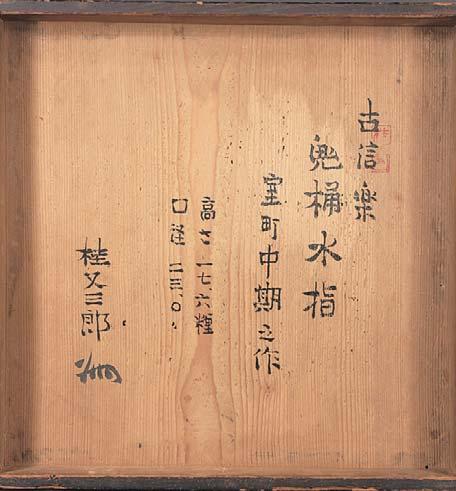 古信楽
鬼桶水指
室町中期之作
高さ 一七、六糎
口径 二三、〇〃
桂又三郎